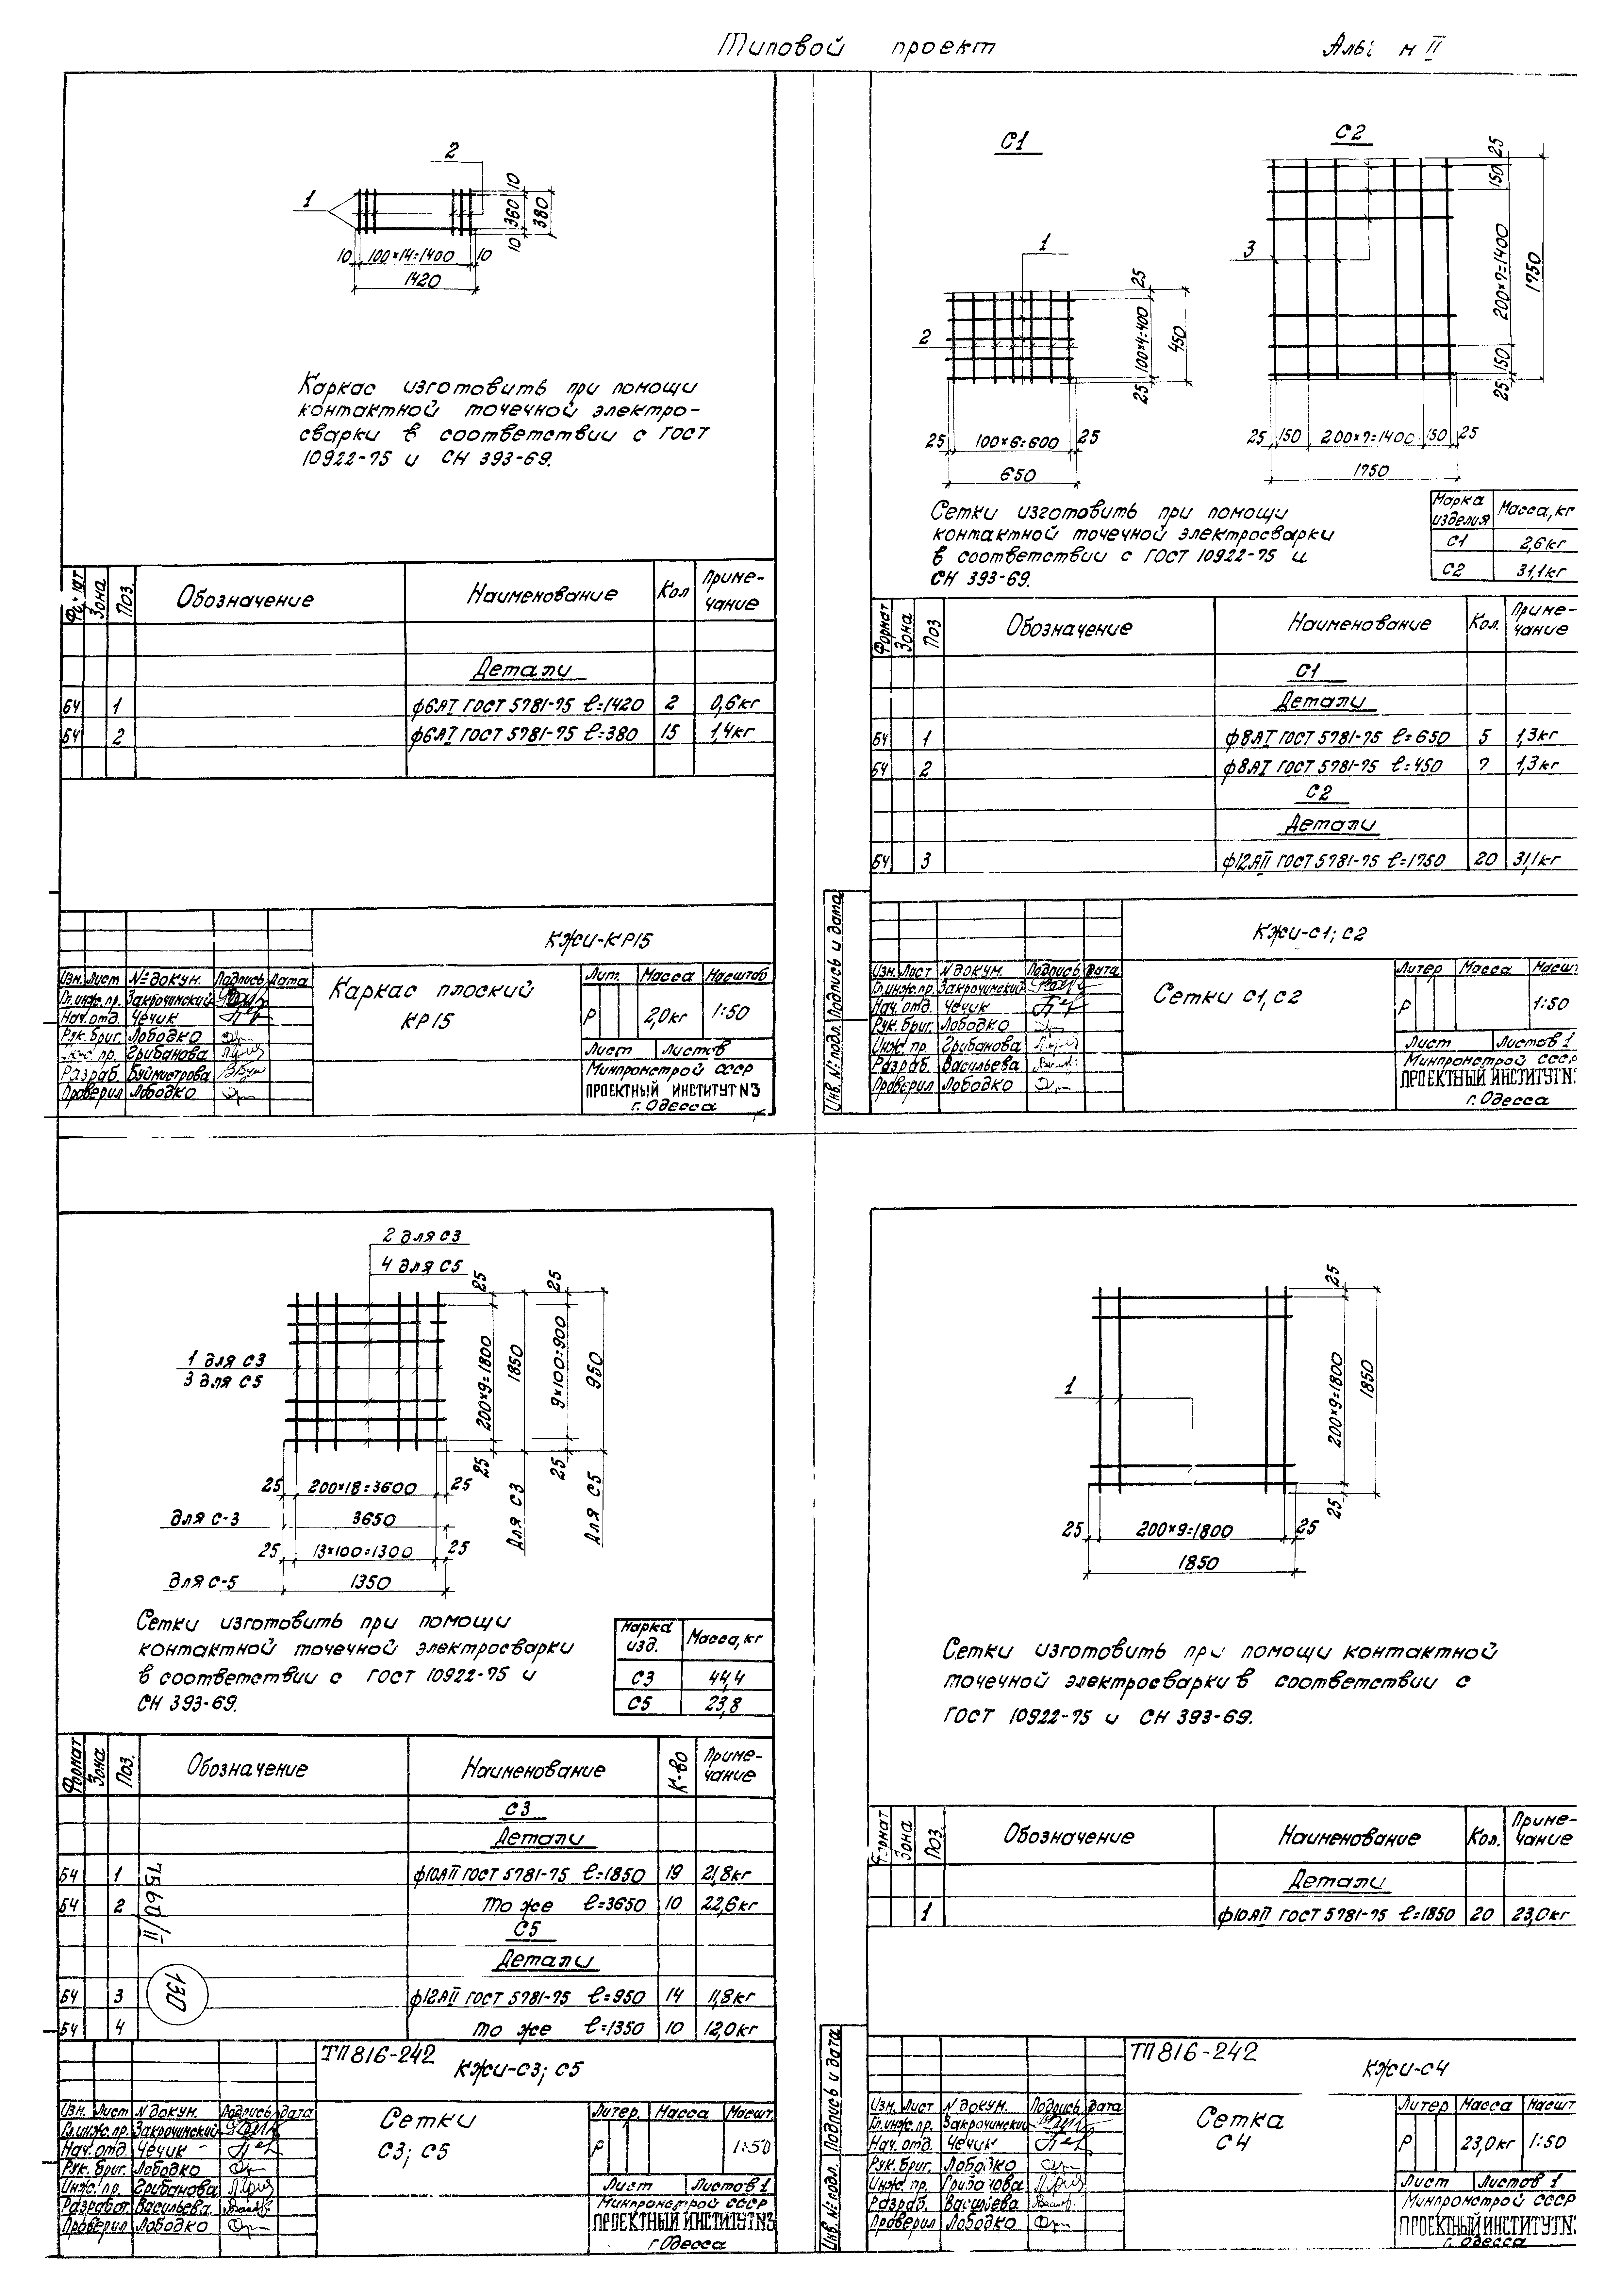 Типовой проект
II
2
1
10
360
10
380
10 100×14=1400 10
1420
Каркас изготовить при помощи
контактной точечной электро-
сварки в соответствии с ГОСТ
10922-75 и СН 393-69.
Зона Поз. Обозначение Наименование Кол Приме-
чание
Детали
БЧ 1 ф6АI ГОСТ 5781-75 ℓ=1420 2 0,6кг
БЧ 2 ф6АI ГОСТ 5781-75 ℓ=380 15 1,4кг
КЖИ-КР15
Изм. Лист №докум. Подпись Дата
Гл.инж.пр. Закрочинский
Нач. отд. Чечик
Рук. бриг. Лободко
пр. Грибанова
Разраб. Буймистрова
Проверил Лободко
Каркас плоский
КР15
Лит. Масса Масштаб
Р 2,0кг 1:50
Лист Листов
Минпромстрой СССР
ПРОЕКТНЫЙ ИНСТИТУТ N3
г. Одесса
С1
1
2
25
100×4=400
25
450
25 100×6=600 25
650
С2
3
25
150
200×7=1400
150
25
1750
25 150 200×7=1400 150 25
1750
Сетки изготовить при помощи
контактной точечной электросварки
в соответствии с ГОСТ 10922-75 и
СН 393-69.
Марка
изделия Масса, кг
С1 2,6кг
С2 31,1кг
Формат Зона Поз Обозначение Наименование Кол. Приме-
чание
С1
Детали
БЧ 1 ф8АI ГОСТ 5781-75 ℓ=650 5 1,3кг
БЧ 2 ф8АI ГОСТ 5781-75 ℓ=450 7 1,3кг
С2
Детали
БЧ 3 ф12АII ГОСТ 5781-75 ℓ=1750 20 31,1кг
Инв. №подл. Подпись и дата
КЖИ-С1; С2
Изм. Лист N докум. Подпись Дата
Гл.инж.пр. Закрочинский
Нач. отд. Чечик
Рук. бриг. Лободко
Инж. пр. Грибанова
Разраб. Васильева
Проверил Лободко
Сетки С1, С2
Литер Масса Масшт
Р 1:50
Лист Листов 1
Минпромстрой СССР
ПРОЕКТНЫЙ ИНСТИТУТ N
г. Одесса
2 для С3
4 для С5
1 для С3
3 для С5
25
200×9=1800
25
1850
Для С3
25
9×100=900
25
950
Для С5
25 200×18=3600 25
для С-3 3650
25 13×100=1300 25
для С-5 1350
Сетки изготовить при помощи
контактной точечной электросварки
в соответствии с ГОСТ 10922-75 и
СН 393-69.
Марка
изд. Масса, кг
С3 44,4
С5 23,8
Формат Зона Поз. Обозначение Наименование К-во Приме-
чание
С3
Детали
БЧ 1 ф10АII ГОСТ 5781-75 ℓ=1850 19 21,8кг
БЧ 2 то же ℓ=3650 10 22,6кг
С5
Детали
БЧ 3 ф12АII ГОСТ 5781-75 ℓ=950 14 11,8кг
БЧ 4 то же ℓ=1350 10 12,0кг
7560/II
130
ТП 816-242
КЖИ-С3; С5
Изм. Лист N докум. Подпись Дата
Гл.инж.пр. Закрочинский
Нач. отд. Чечик
Рук. бриг. Лободко
Инж. пр. Грибанова
Разработ. Васильева
Проверил Лободко
Сетки
С3; С5
Литер. Масса Масшт.
Р 1:50
Лист Листов 1
Минпромстрой СССР
ПРОЕКТНЫЙ ИНСТИТУТ N3
г. Одесса
1
25
200×9=1800
25
1850
25 200×9=1800 25
1850
Сетки изготовить при помощи контактной
точечной электросварки в соответствии с
ГОСТ 10922-75 и СН 393-69.
Формат Зона Поз. Обозначение Наименование Кол. Приме-
чание
Детали
1 ф10АII ГОСТ 5781-75 ℓ=1850 20 23,0кг
Инв. №подл. Подпись и дата
ТП 816-242
КЖИ-С4
Изм. Лист N докум. Подпись Дата
Гл.инж.пр. Закрочинский
Нач. отд. Чечик
Рук. бриг. Лободко
Инж. пр.
Разраб. Васильева
Проверил Лободко
Сетка
С4
Литер Масса Масшт
Р 23,0кг 1:50
Лист Листов 1
Минпромстрой СССР
ПРОЕКТНЫЙ ИНСТИТУТ N
г. Одесса